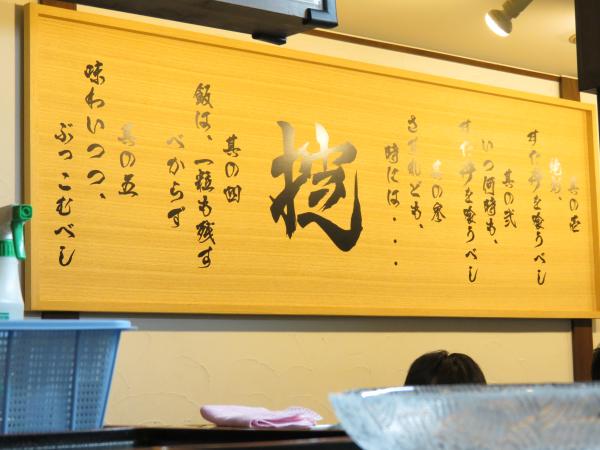 其の壱
絶対、
すた丼を喰うべし
其の弐
いつ何時も、
すた丼を喰うべし
其の参
さすれども、
時には・・・
掟
其の四
飯は、一粒も残す
べからず
其の五
味わいつつ、
ぶっこむべし